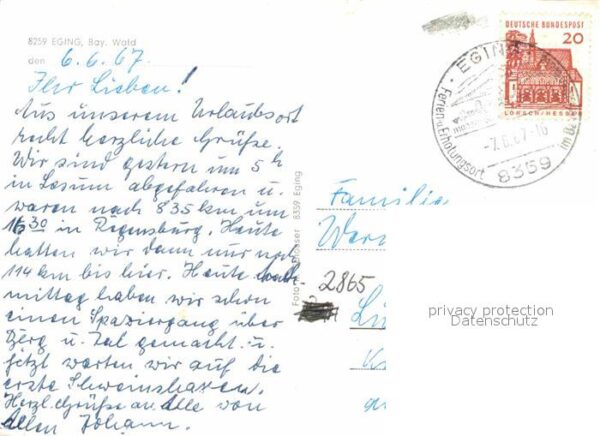 8259 EGING, Bay. Wald
den 6.6.67.
Ihr Lieben!
Aus unserem Urlaubsort
recht herzliche Grüße.
Wir sind gestern um 5 h
in Lesum abgefahren u.
waren nach 835 km um
16³⁰ in Regensburg. Heute
hatten wir dann nur noch
114 km bis hier. Heute
mittag haben wir schon
einen Spaziergang über
Berg u. Tal gemacht u.
jetzt warten wir auf die
erste Schweinshaxen.
Herzl. Grüße an Alle von
Allen Johann.
Foto 8359 Eging
DEUTSCHE BUNDESPOST
20
LORSCH/HESSEN
EGING
Ferien- u. Erholungsort
-7.6.67-16
8359
Familie
Wer
2865
privacy protection
Datenschutz